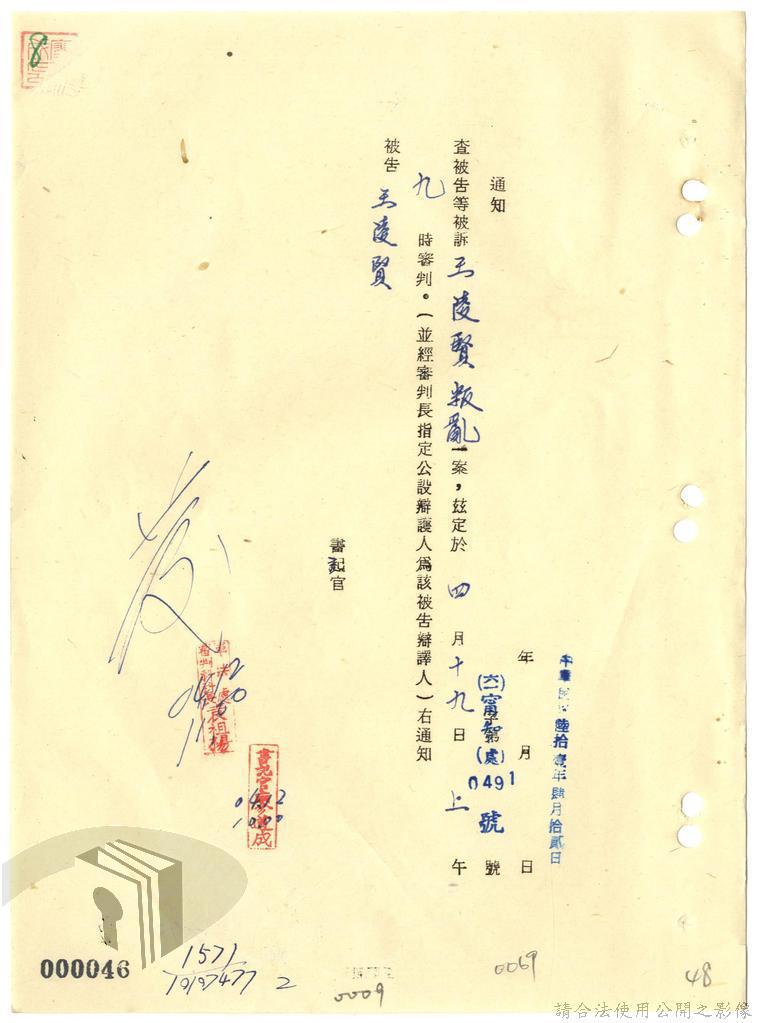 8
通知
中華民國陸拾壹年肆月拾貳日
年 月 日
(六一)甯智(處)字第0491號 號
查被告等被訴王陵賢叛亂一案,茲定於四月十九日上午
九時審判。(並經審判長指定公設辯護人為該被告辯譯人)右通知
被告 王陵賢
書記官
發
0412
1100
書記官
0412
1000
000046
1571
10197477 2
0009
0069
48
請合法使用公開之影像